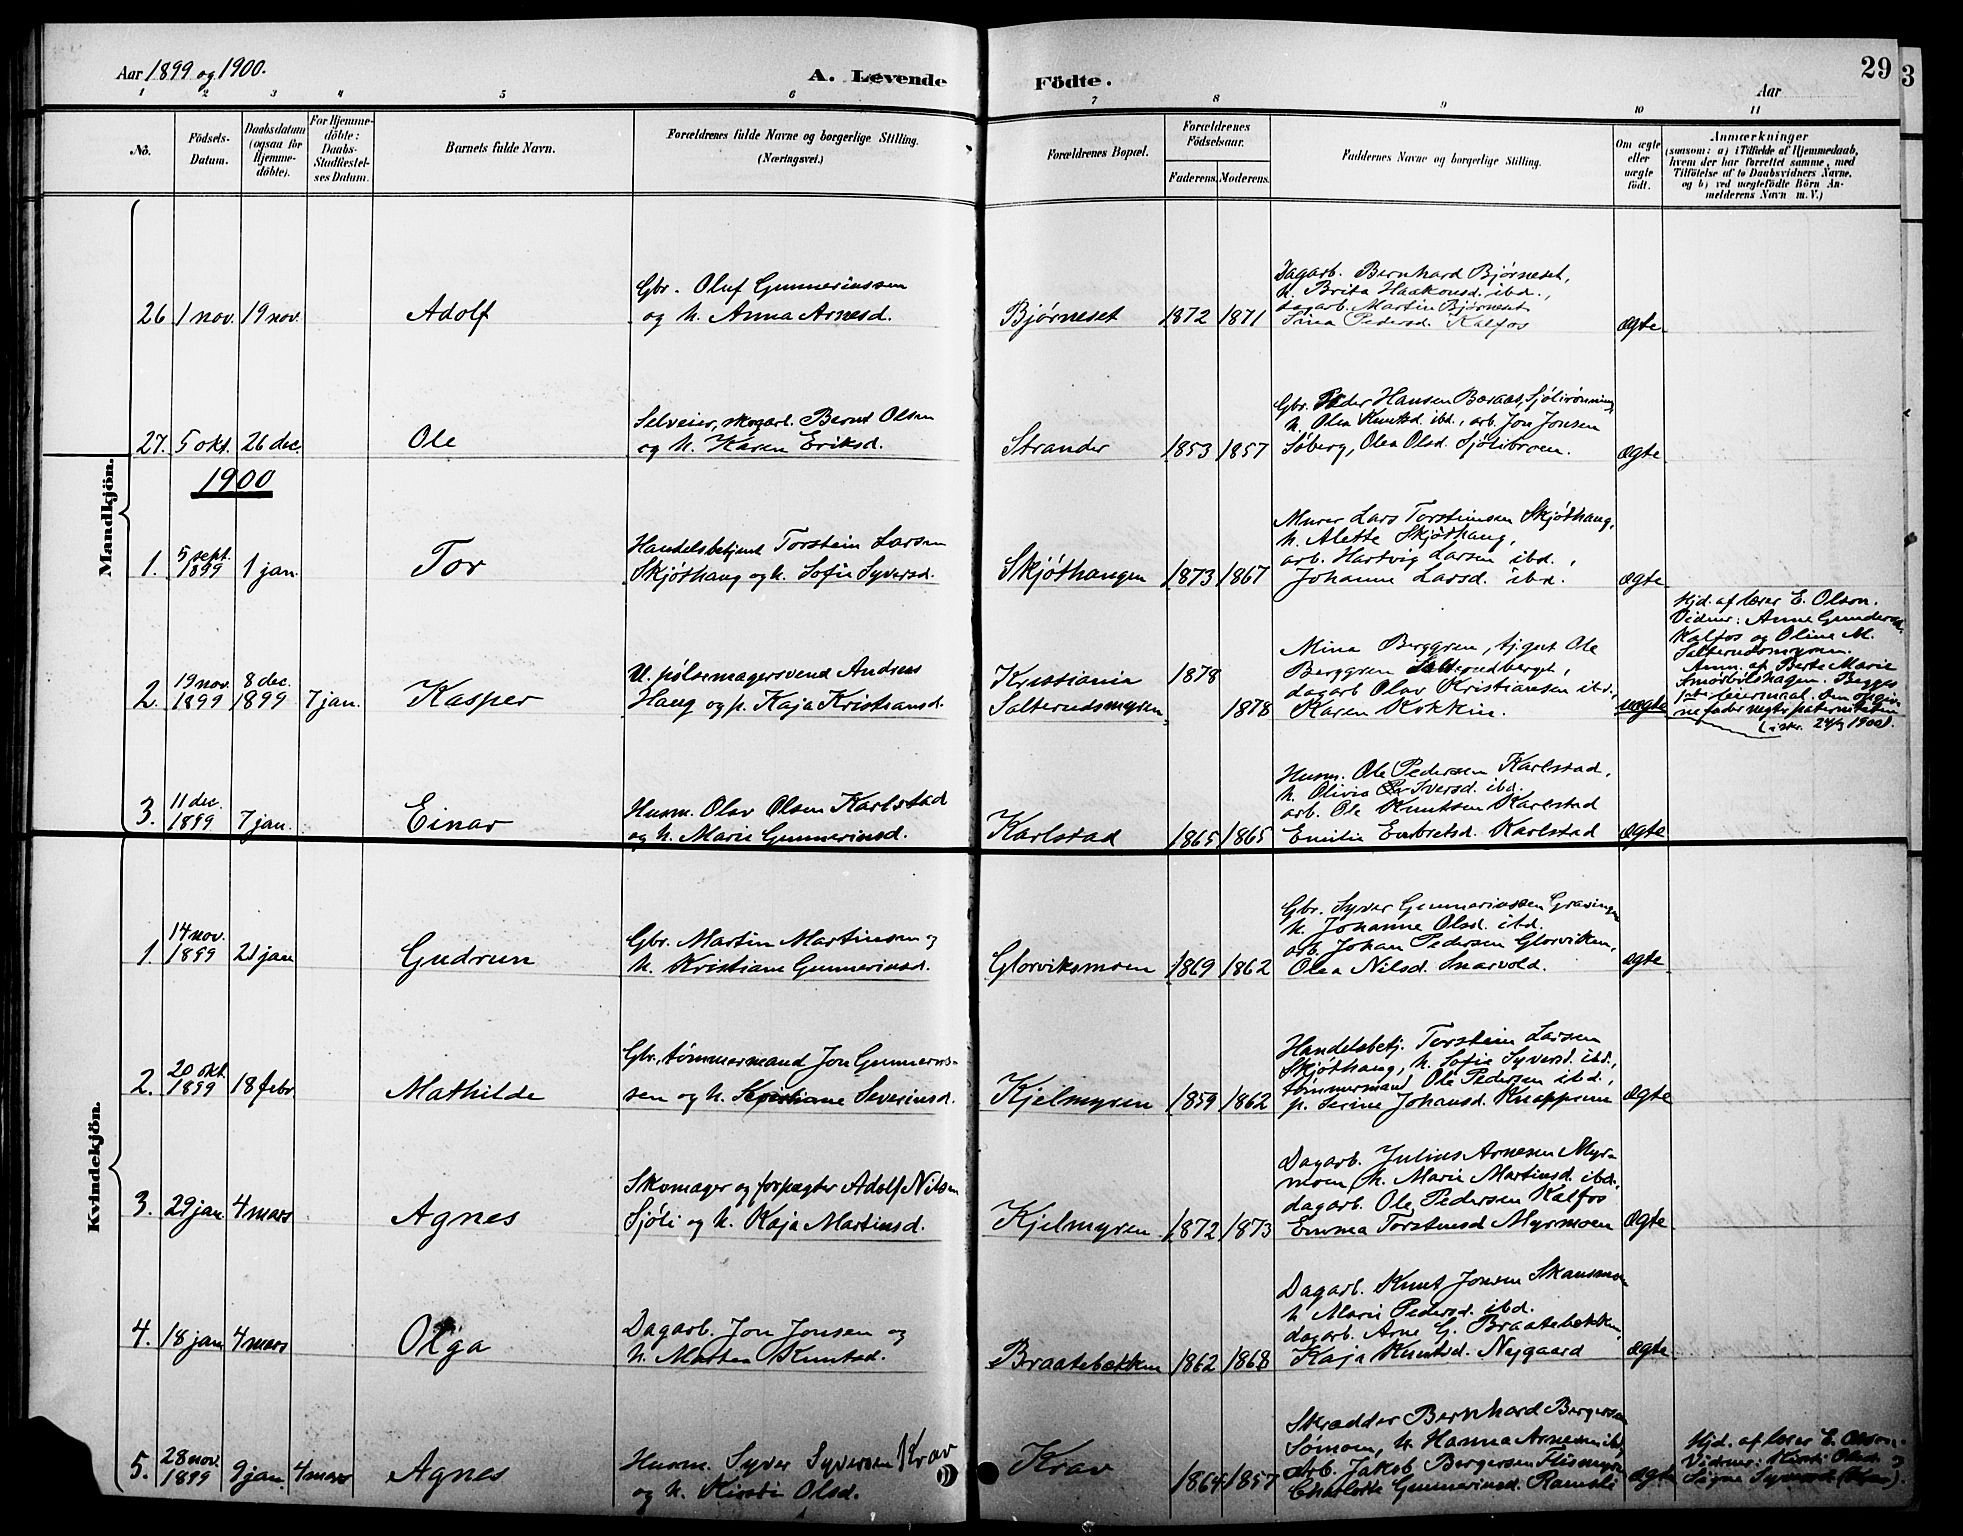 Aar 1899 og 1900.
A. Levende
Födte.
Aar
29
3
1 2 3 4 5 6 7 8 9 10 11
Nô.
Födsels-
Datum.
Daabsdatum
(ogsaa for
Hjemme-
döbte).
For Hjemme-
döbte:
Daabs-
Stadfæstel-
ses Datum.
Barnets fulde Navn.
Forældrenes fulde Navne og borgerlige Stilling.
(Næringsvei.)
Forældrenes Bopæl.
Forældrenes
Födselsaar.
Faderens. Moderens.
Faddernes Navne og borgerlige Stilling.
Om ægte
eller
uægte
födt.
Anmærkninger
(saasom: a) i Tilfælde af Hjemmedaab,
hvem der har forrettet samme, med
Tilföielse af to Daabsvidners Navne.
og b) ved uægtefödte Börn An-
melderens Navn m. V.)
Mandkjön.
26 1 nov. 19 nov. Adolf
Gbr. Oluf Gunneriussen
og h. Anna Arnesd.
Bjørneset 1872 1871
Dagarb. Bernhard Bjørneset,
h. Brita Haakonsd. ibd.,
dagarb. Martin Bjørneset
Pedersd. Kalfos
ægte
27. 5 okt. 26 dec. Ole
Selveier, skogarb. Bernt Olsen
og h. Karen Eriksd.
Strander 1853 1857
Gbr. Peder Hansen Baraas, Sjølirønning,
h. Olea Knutsd. ibd., arb. Jon Jonsen
Søberg, Olea Olsd. Sjølibroen.
ægte
1900
1. 5 sept. 1899 1 jan. Tor
Handelsbetjent Torstein Larsen
Skjøthaug og h. Sofie Syversd.
Skjøthaugen 1873 1867
Murer Lars Torsteinsen Skjøthaug,
h. Alette Skjøthaug,
arb. Hartvig Larsen ibd.,
Johanne Larsd. ibd.
ægte
2. 19 nov. 1899 8 dec. 1899 7 jan. Kasper
U. pølsemagersvend Andreas
Haug og p. Kaja Kristiansd.
Kristiania 1878
Salterudsmyren 1878
Mina Berggren, tjgut Ole
Berggren
dagarb. Olav Kristiansen ibd.,
Karen Kokkin.
uægte
Hjd. af lærer E. Olson.
Vidner: Anne Gundersd.
Kalfos og Oline M.
Salterudsmyren.
Anm. af Berte Marie
Smørbilshagen. Begges
1ste leiermaal. Den opgiv-
ne fader negter paterniteten
3. 11 dec. 1899 7 jan. Einar
Husm. Olav Olsen Karlstad
og h. Marie Gunneriusd.
Karlstad 1865 1865
Husm. Ole Pedersen Karlstad,
h. Olivia Iversd. ibd.
arb. Ole Knutsen Karlstad
Emilie Embretsd. Karlstad
ægte
Kvindekjön.
1. 14 nov. 1899 21 jan Gudrun
Gbr. Martin Martinsen og
h. Kristiane Gunneriusd.
Glorviksmoen 1869 1862
Gbr. Syver Gunneriussen
h. Johanne Olsd. ibd.
arb. Johan Pedersen Glorviken,
Olea Nilsd. Snarvold.
ægte
2. 20 okt. 1899 18 febr. Mathilde
Gbr., tømmermand Jon Gunnerius-
sen og h. Kristiane Severinsd.
Kjelmyren 1859 1862
Handelsbetj. Torstein Larsen
Skjøthaug, h. Sofie Syversd. ibd.,
tømmermand Ole Pedersen ibd.,
p. Serine Johansd. Knapprun
ægte
3. 29 jan 4 mars Agnes
Skomager og forpagter Adolf Nilsen
Sjøli og h. Kaja Martinsd.
Kjelmyren 1872 1873
Dagarb. Julius Arnesen Myr-
moen, h. Marie Martinsd. ibd.,
dagarb. Ole Pedersen Kalfos
Emma Torstensd Myrmoen
ægte
4. 18 jan 4 mars Olga
Dagarb. Jon Jonsen og
h. Martea Knutsd.
Braatebækken 1862 1868
Dagarb. Knut Jonsen
h Marie Pedersd. ibd.
dagarb. Arne G. Braatebekken,
Kaja Knutsd. Nygaard
ægte
5. 28 nov. 1899 9 jan. 4 mars Agnes
Husm. Syver Syversen Krav
og h. Kirsti Olsd.
Krav 1864 1857
Skrædder Bernhard Bergersen
Sømoen, h. Hanna Arnesen ibd,
Arb. Jakob Bergersen Flismyren
Charlotte Gunneriusd. Rambli
ægte
Hjd. af lærer E. Olson.
Vidner: Kirsti Olsd. og
Signe Syversd. (Krav).